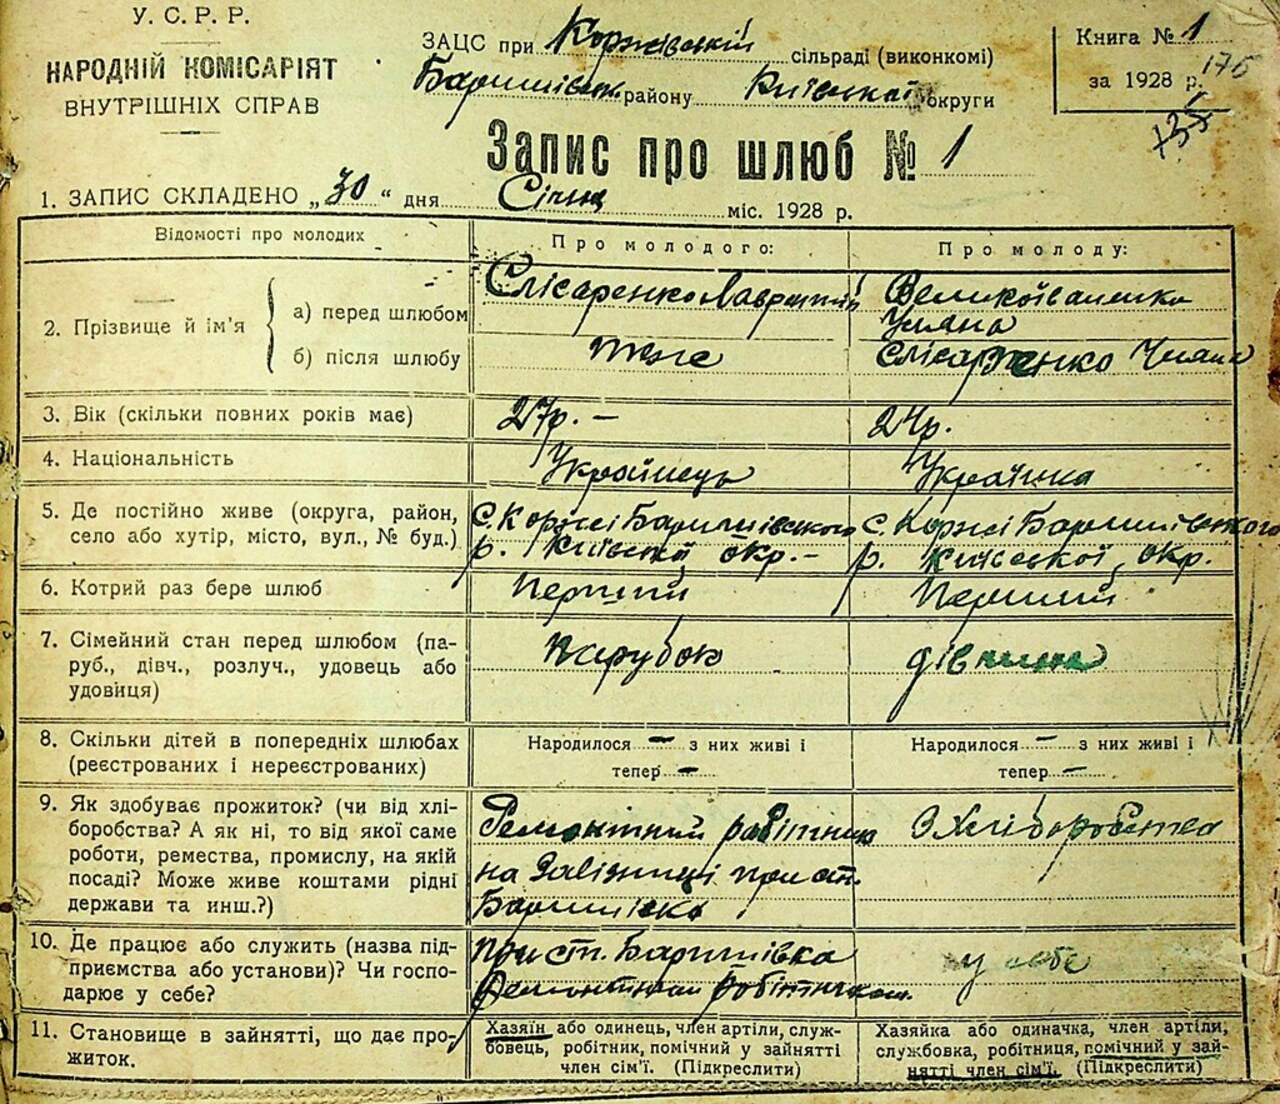 У. С. Р. Р.
НАРОДНІЙ КОМІСАРІЯТ
ВНУТРІШНІХ СПРАВ
ЗАЦС при Коржівській сільраді (виконкомі)
Баришівськ. району Київської округи
Книга № 1
за 1928 р.
176
135
Запис про шлюб № 1
1. ЗАПИС СКЛАДЕНО „30“ дня Січня міс. 1928 р.
Відомості про молодих
Про молодого:
Про молоду:
2. Прізвище й ім'я
а) перед шлюбом
Слісаренко Лаврентій
Великоіваненко
Уляна
б) після шлюбу
теж
Слісаренко Уляна
3. Вік (скільки повних років має)
27р. –
24р.
4. Національність
Українець
Українка
5. Де постійно живе (округа, район,
село або хутір, місто, вул., № буд.)
с. Коржі Баришівського
р. Київськ. окр. –
с. Коржі Баришівського
р. Київської окр.
6. Котрий раз бере шлюб
Перший
Перший
7. Сімейний стан перед шлюбом (па-
руб., дівч., розлуч., удовець або
удовиця)
парубок
дівчина
8. Скільки дітей в попередніх шлюбах
(реєстрованих і нереєстрованих)
Народилося – з них живі і
тепер –
Народилося – з них живі і
тепер –
9. Як здобуває прожиток? (чи від хлі-
боробства? А як ні, то від якої саме
роботи, ремества, промислу, на якій
посаді? Може живе коштами рідні
держави та инш.?)
Ремонтний робітник
на Залізниці при ст.
Баришівка
З Хліборобства
10. Де працює або служить (назва під-
приємства або установи)? Чи госпо-
дарює у себе?
при ст. Баришівка
Ремонтним робітником.
у себе
11. Становище в зайнятті, що дає про-
житок.
Хазяїн або одинець, член артіли, служ-
бовець, робітник, помічний у зайнятті
член сім'ї. (Підкреслити)
Хазяйка або одиначка, член артіли,
службовка, робітниця, помічний у зай-
нятті член сім'ї. (Підкреслити)